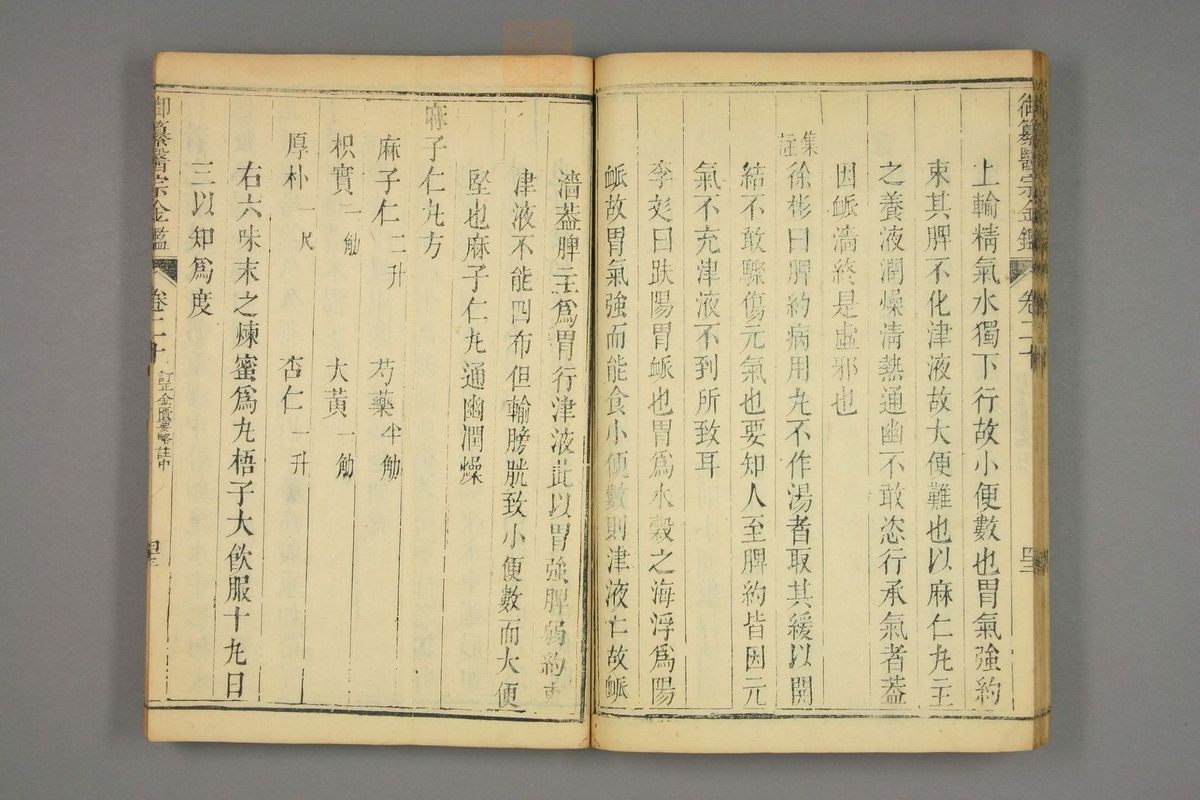 御纂醫宗金鑑 卷二十
上輸精氣水獨下行故小便數也胃氣強約
束其脾不化津液故大便難也以麻仁丸主
之養液潤燥清熱通幽不敢恣行承氣者蓋
因脈濇終是虛邪也
集註
徐彬曰脾約病用丸不作湯者取其緩以開
結不敢驟傷元氣也要知人至脾約皆因元
氣不充津液不到所致耳
李彣曰趺陽胃脈也胃為水穀之海浮為陽
脈故胃氣強而能食小便數則津液亡故脈
濇蓋脾主為胃行津液此以胃強脾弱約束
津液不能四布但輸膀胱致小便數而大便
堅也麻子仁丸通幽潤燥
麻子仁丸方
麻子仁二升 芍藥半觔
枳實一觔 大黃一觔
厚朴一尺 杏仁一升
右六味末之煉蜜為丸梧子大飲服十丸日
三以知為度
御纂醫宗金鑑 卷二十 訂正金匱要略註中